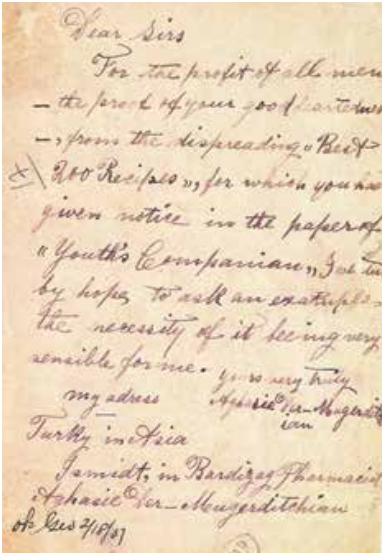 Dear Sirs
For the profit of all men
– the proof of your good heartednes
–, from the dispreading „Best
200 Recipes", for which you ha
given notice in the paper of
„Youth's Companian„ I ve
by hope, to ask an example –
the necessity of it being very
sensible for me. yours very truly
my adress Aghasie Der–Mugerdit
ian
Turky in Asia
Ismidt, in Bardizag Pharmacist
Aghasie Der–Mugerditchian
ok Geo 2/18/07